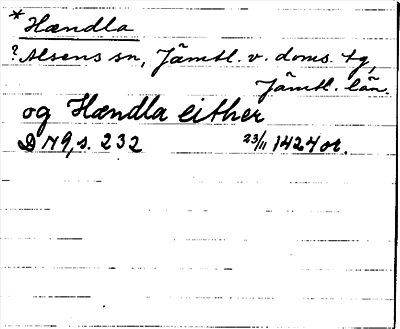 *Hændla
?Alsens sn, Jämtl. v. doms. tg,
Jämtl. län.
og Hændla either
D 179, s. 232 23/11 1424 or.